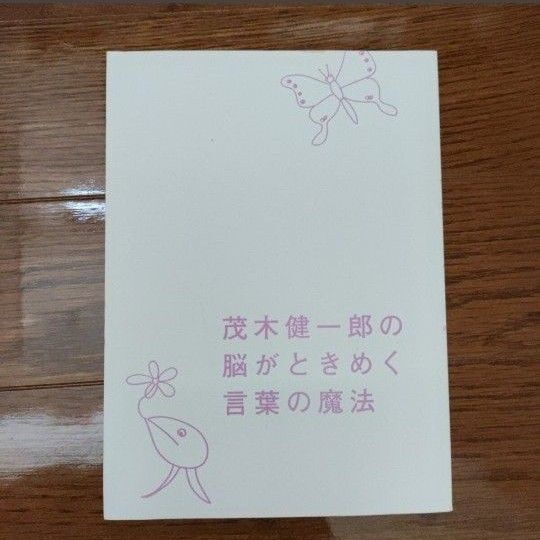 茂木健一郎の
脳がときめく
言葉の魔法